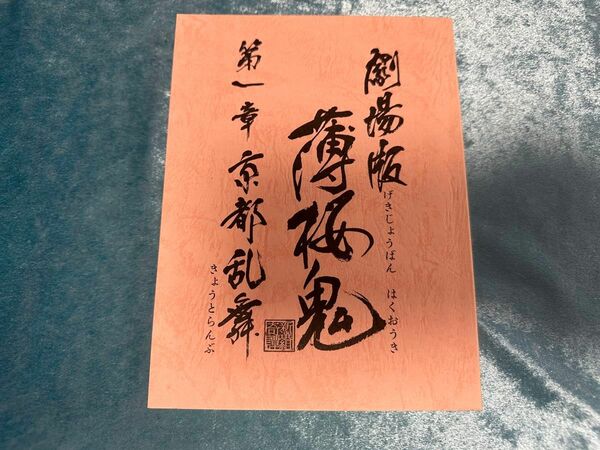 劇場版
げきじょうばん
薄桜鬼
はくおうき
第一章 京都乱舞
きょうとらんぶ